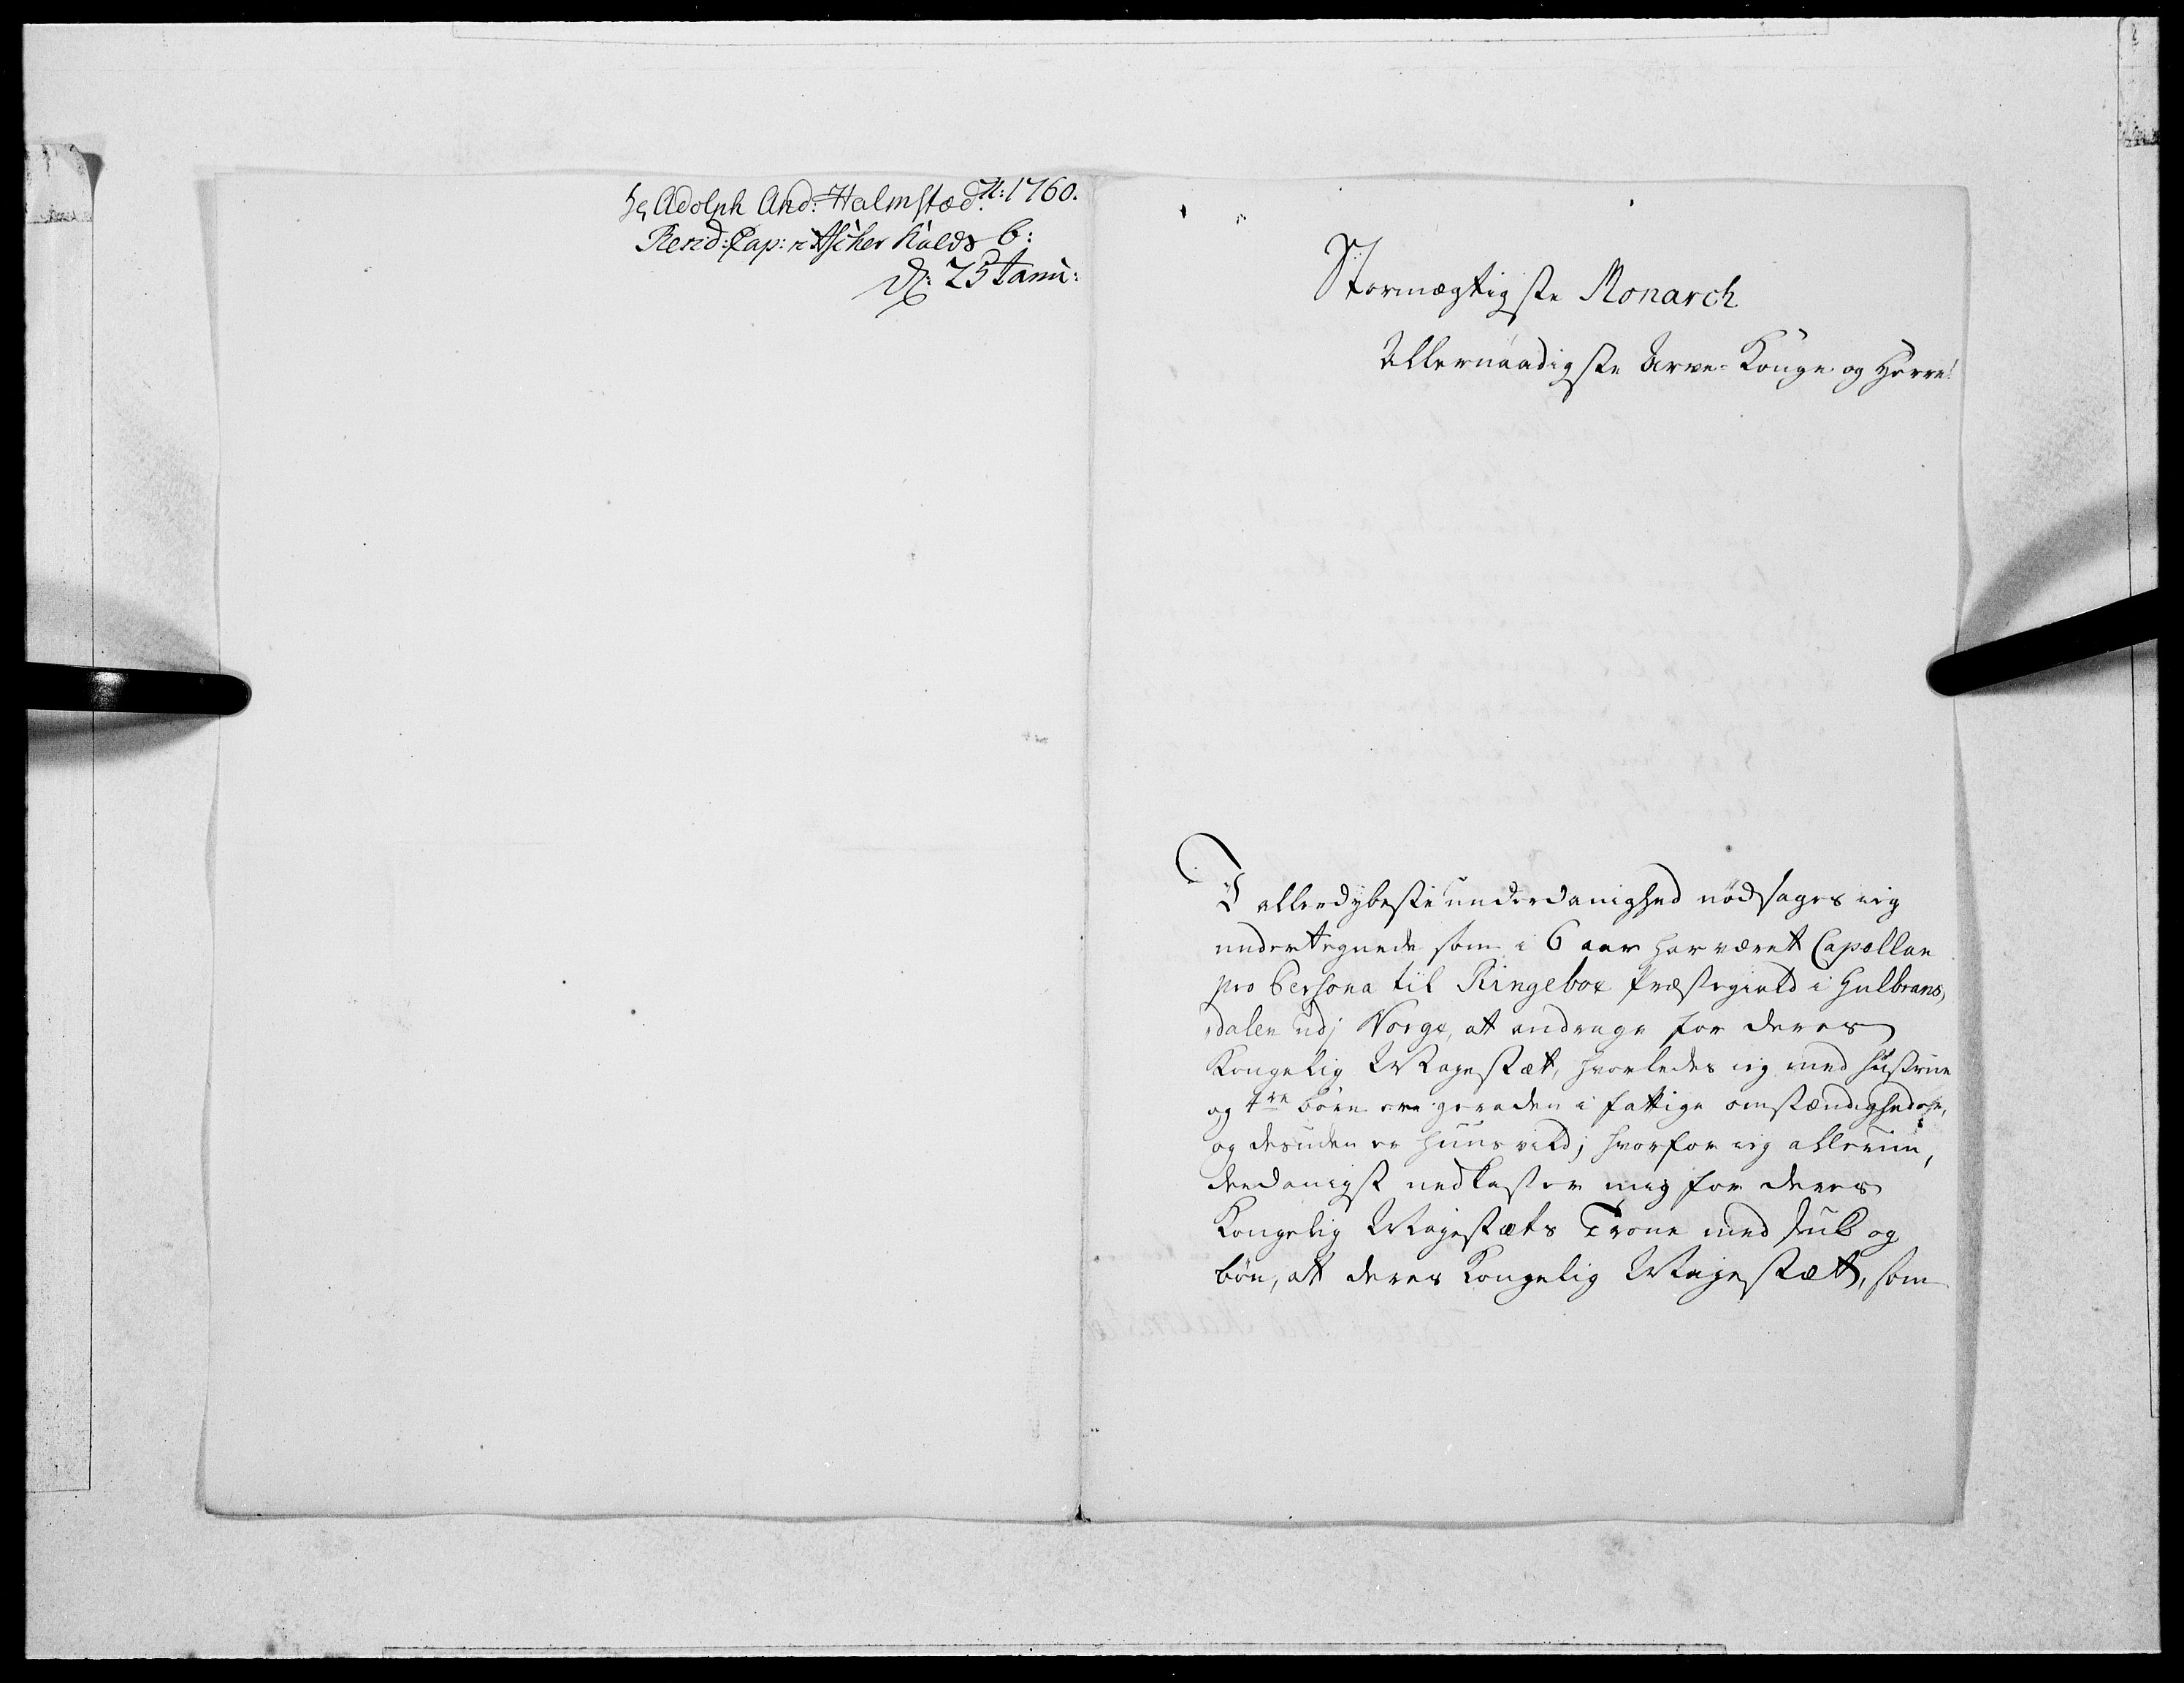 Adolph And: Halmstæd. A: 1760.
Resid: Cap: Kalds b:
D: 25 Janu:
Stormægtigste Monarch
Allernaadigste Arve-Konge og Herre!
I allerdybeste underdanighed nødsages ieg
undertegnede som i 6 aar har været Capellan
pro Persona til Ringeboe Præstegield i Gulbrans,
dalen udj Norge, at andrage for deres
Kongelig Mayestæt, hvorledes ieg med hustrue
og 4re børn ere geraaden i fattige omstændigheder,
og desuden er huusvild; hvorfor ieg allerun,
derdanigst nedkaster mig for deres
Kongelig Mayestæts Trone med suk og
bøn, at deres Kongelig Mayestæt, som